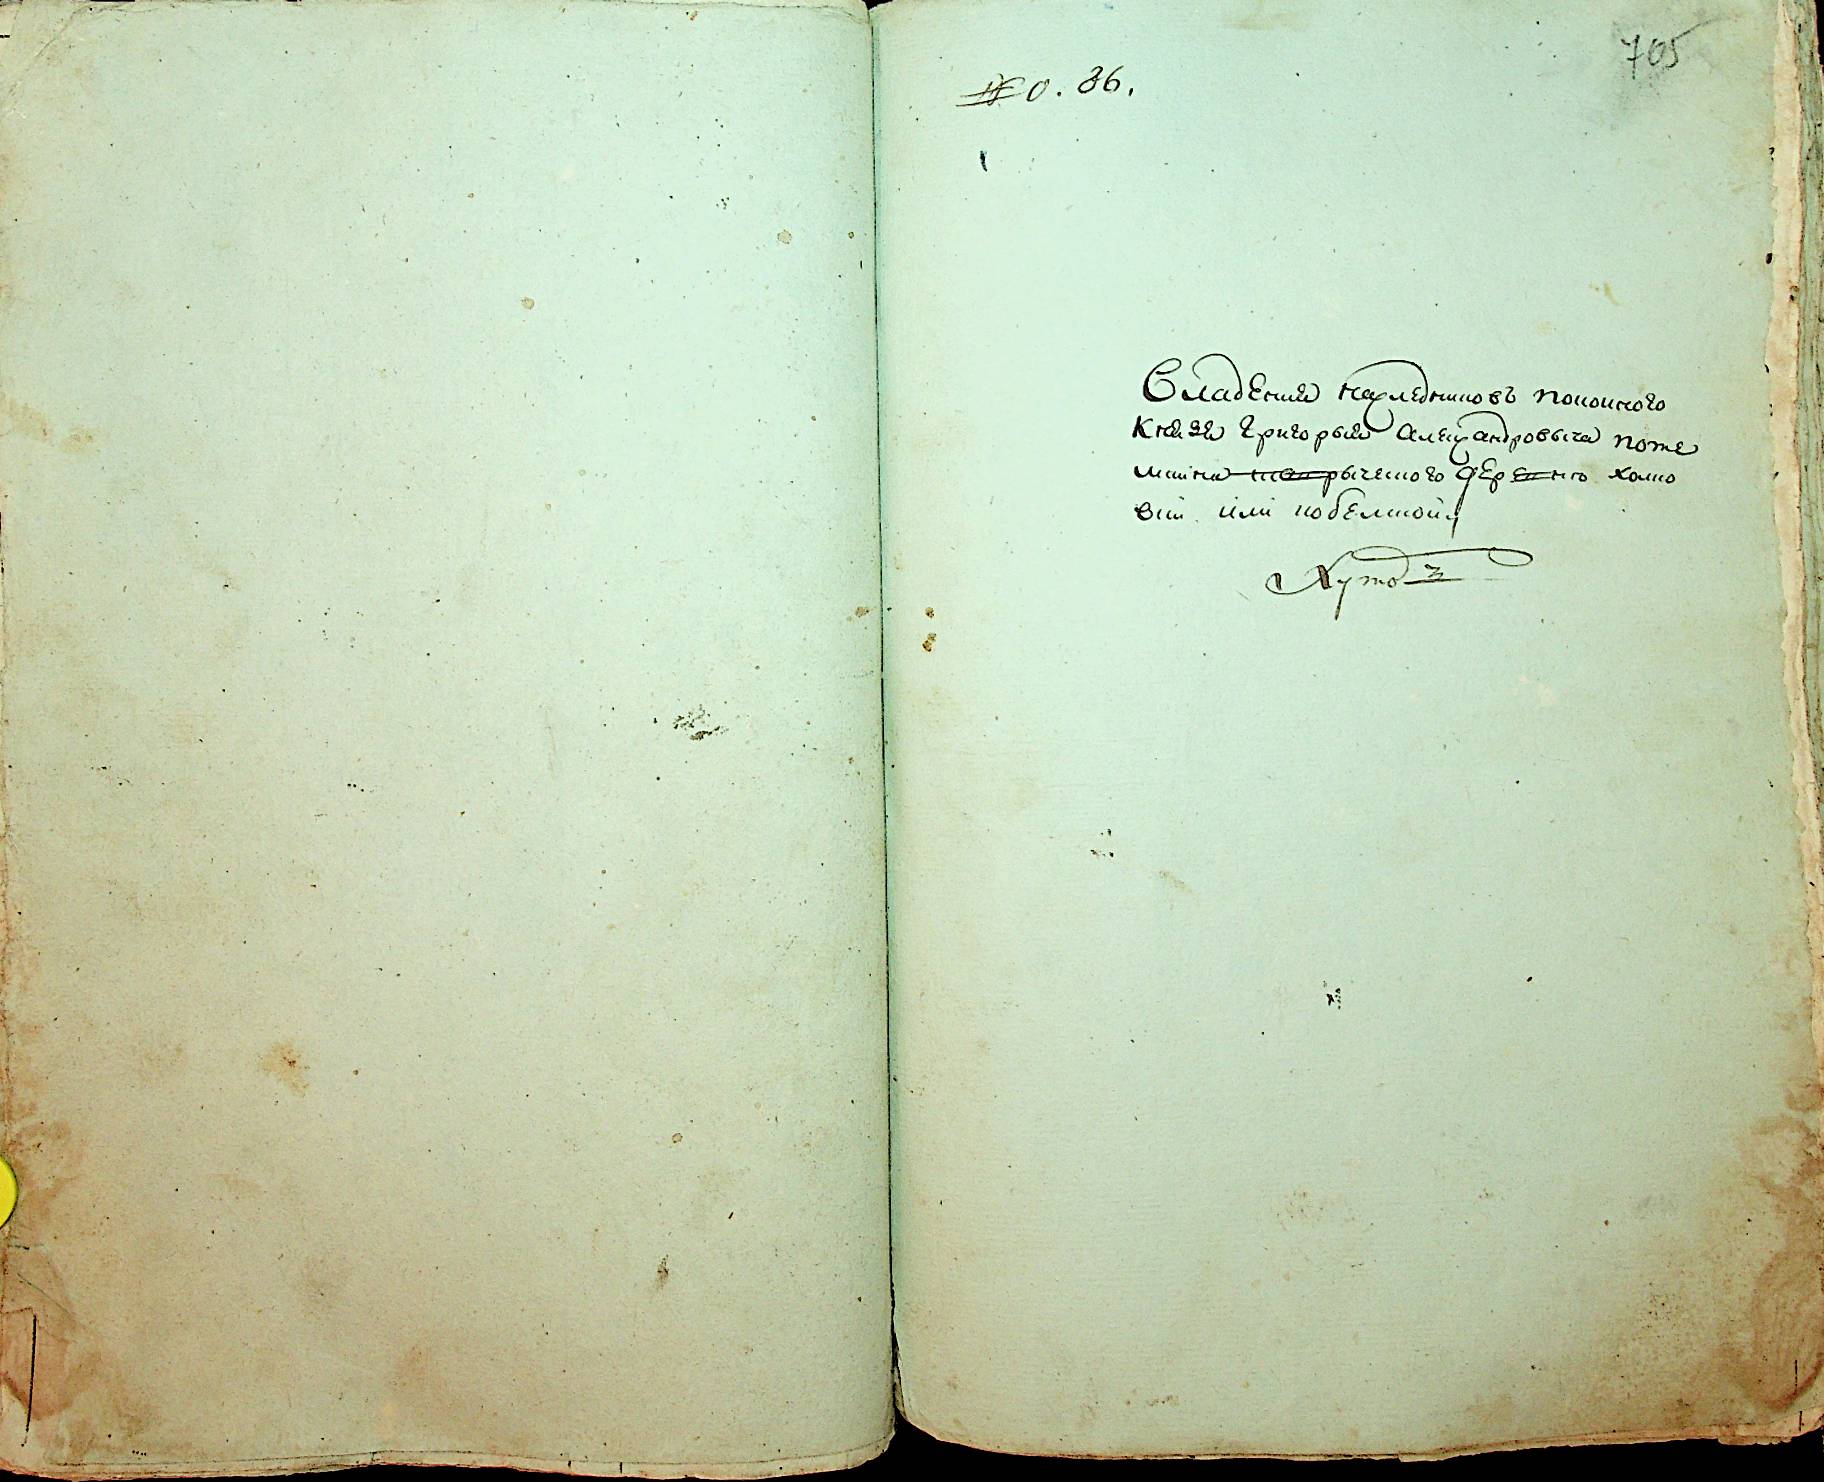 705
№ 0. 36.
Владения наследников покоиного
Князя Григорья Александровича Поте
мкина таврыческого дер холмо
вки или кобелиой